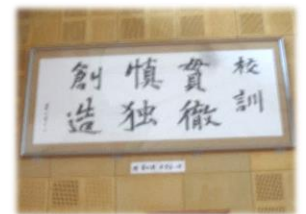 校訓
貫徹
慎独
創造